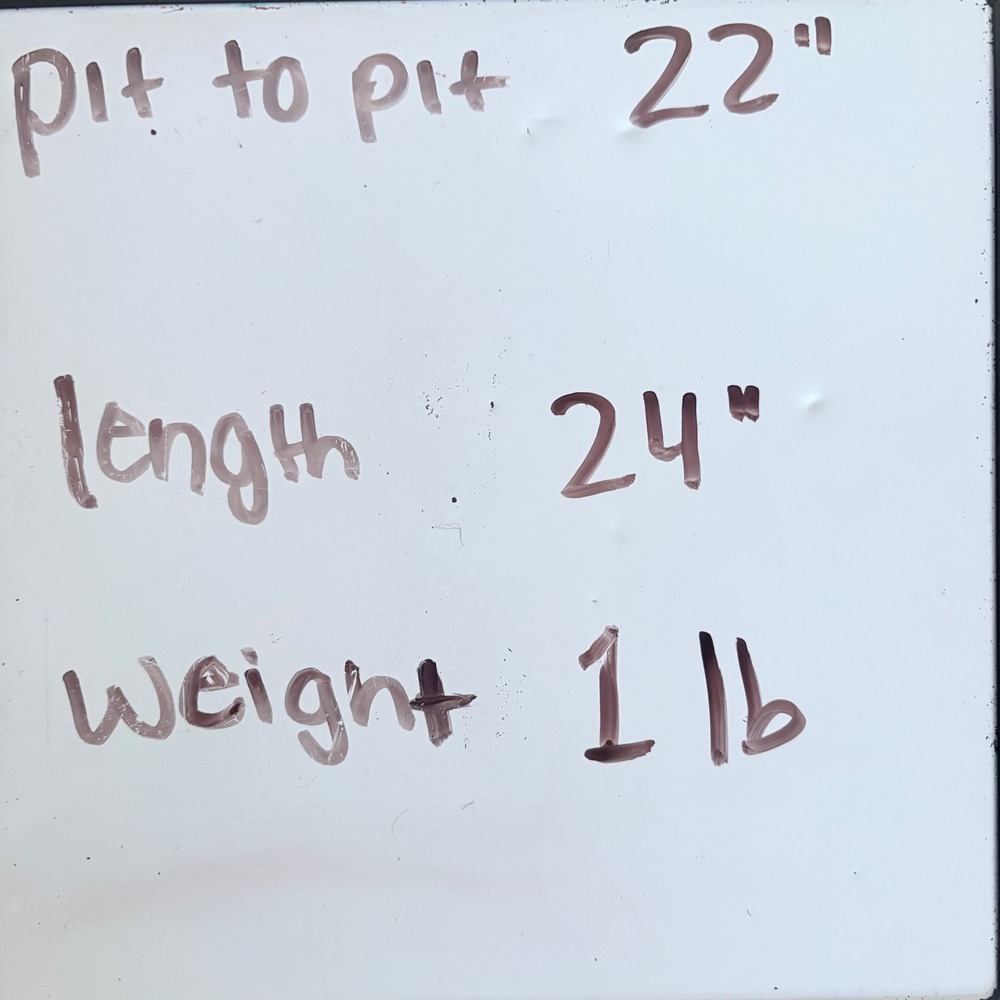 pit to pit 22"
length 24"
weight 1 lb